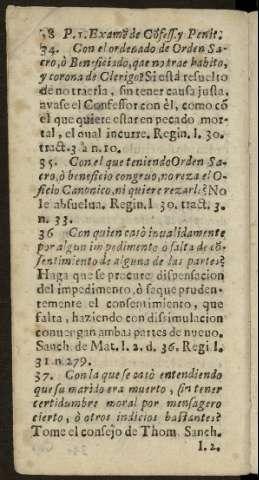 58 P. 1. Examẽ de Cõfess. y Penit.
34. Con el ordenado de Orden Sa-
cro, ò Beneficiado, que no trae habito,
y corona de Clerigo? Si està resuelto
de no traerla, sin tener causa justa,
avase el Confessor con èl, como cõ
el que quiere estar en pecado mor-
tal, el qual incurre. Regin. l. 30.
tract. 3 à n. 10.
35. Con el que teniendo Orden Sa-
cro, ò beneficio congruo, no reza el O-
ficio Canonico, ni quiere rezarle? No
le absuelua. Regin. l 30. tract. 3.
n. 33.
36 Con quien casò inualidamente
por algun impedimento o falta de cõ-
sentimiento de alguna de las partes?
Haga que se procure dispensacion
del impedimento, ò saque pruden-
temente el consentimiento, que
falta, haziendo con dissimulacion
conuengan ambas partes de nueuo.
Sanch. de Mat. l. 2. d. 36. Regi l.
31 n 279.
37. Con la que se casò entendiendo
que su marido era muerto, sin tener
certidumbre moral por mensagero
cierto, ò otros indicios bastantes?
Tome el consejo de Thom. Sanch.
l. 2.